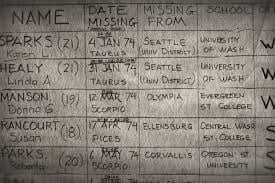 NAME DATE MISSING MISSING FROM SCHOOL
SPARKS (21) 4 JAN '74 SEATTLE UNIVERSITY
Karen L. TAURUS (UNIV DISTRICT) OF WASH
HEALY (21) 31 JAN '74 SEATTLE UNIVERSITY
Linda A. TAURUS (UNIV DISTRICT) OF WASH
MANSON, (19) 12 MAR '74 OLYMPIA EVERGREEN
Donna G. SCORPIO ST. COLLEGE
RANCOURT (18) 17 APR '74 ELLENSBURG CENTRAL WASH
Susan PICES ST COLLEGE
PARKS, (20) 6 '74 CORVALLIS OREGON ST.
Roberta SCORPIO UNIVERSITY